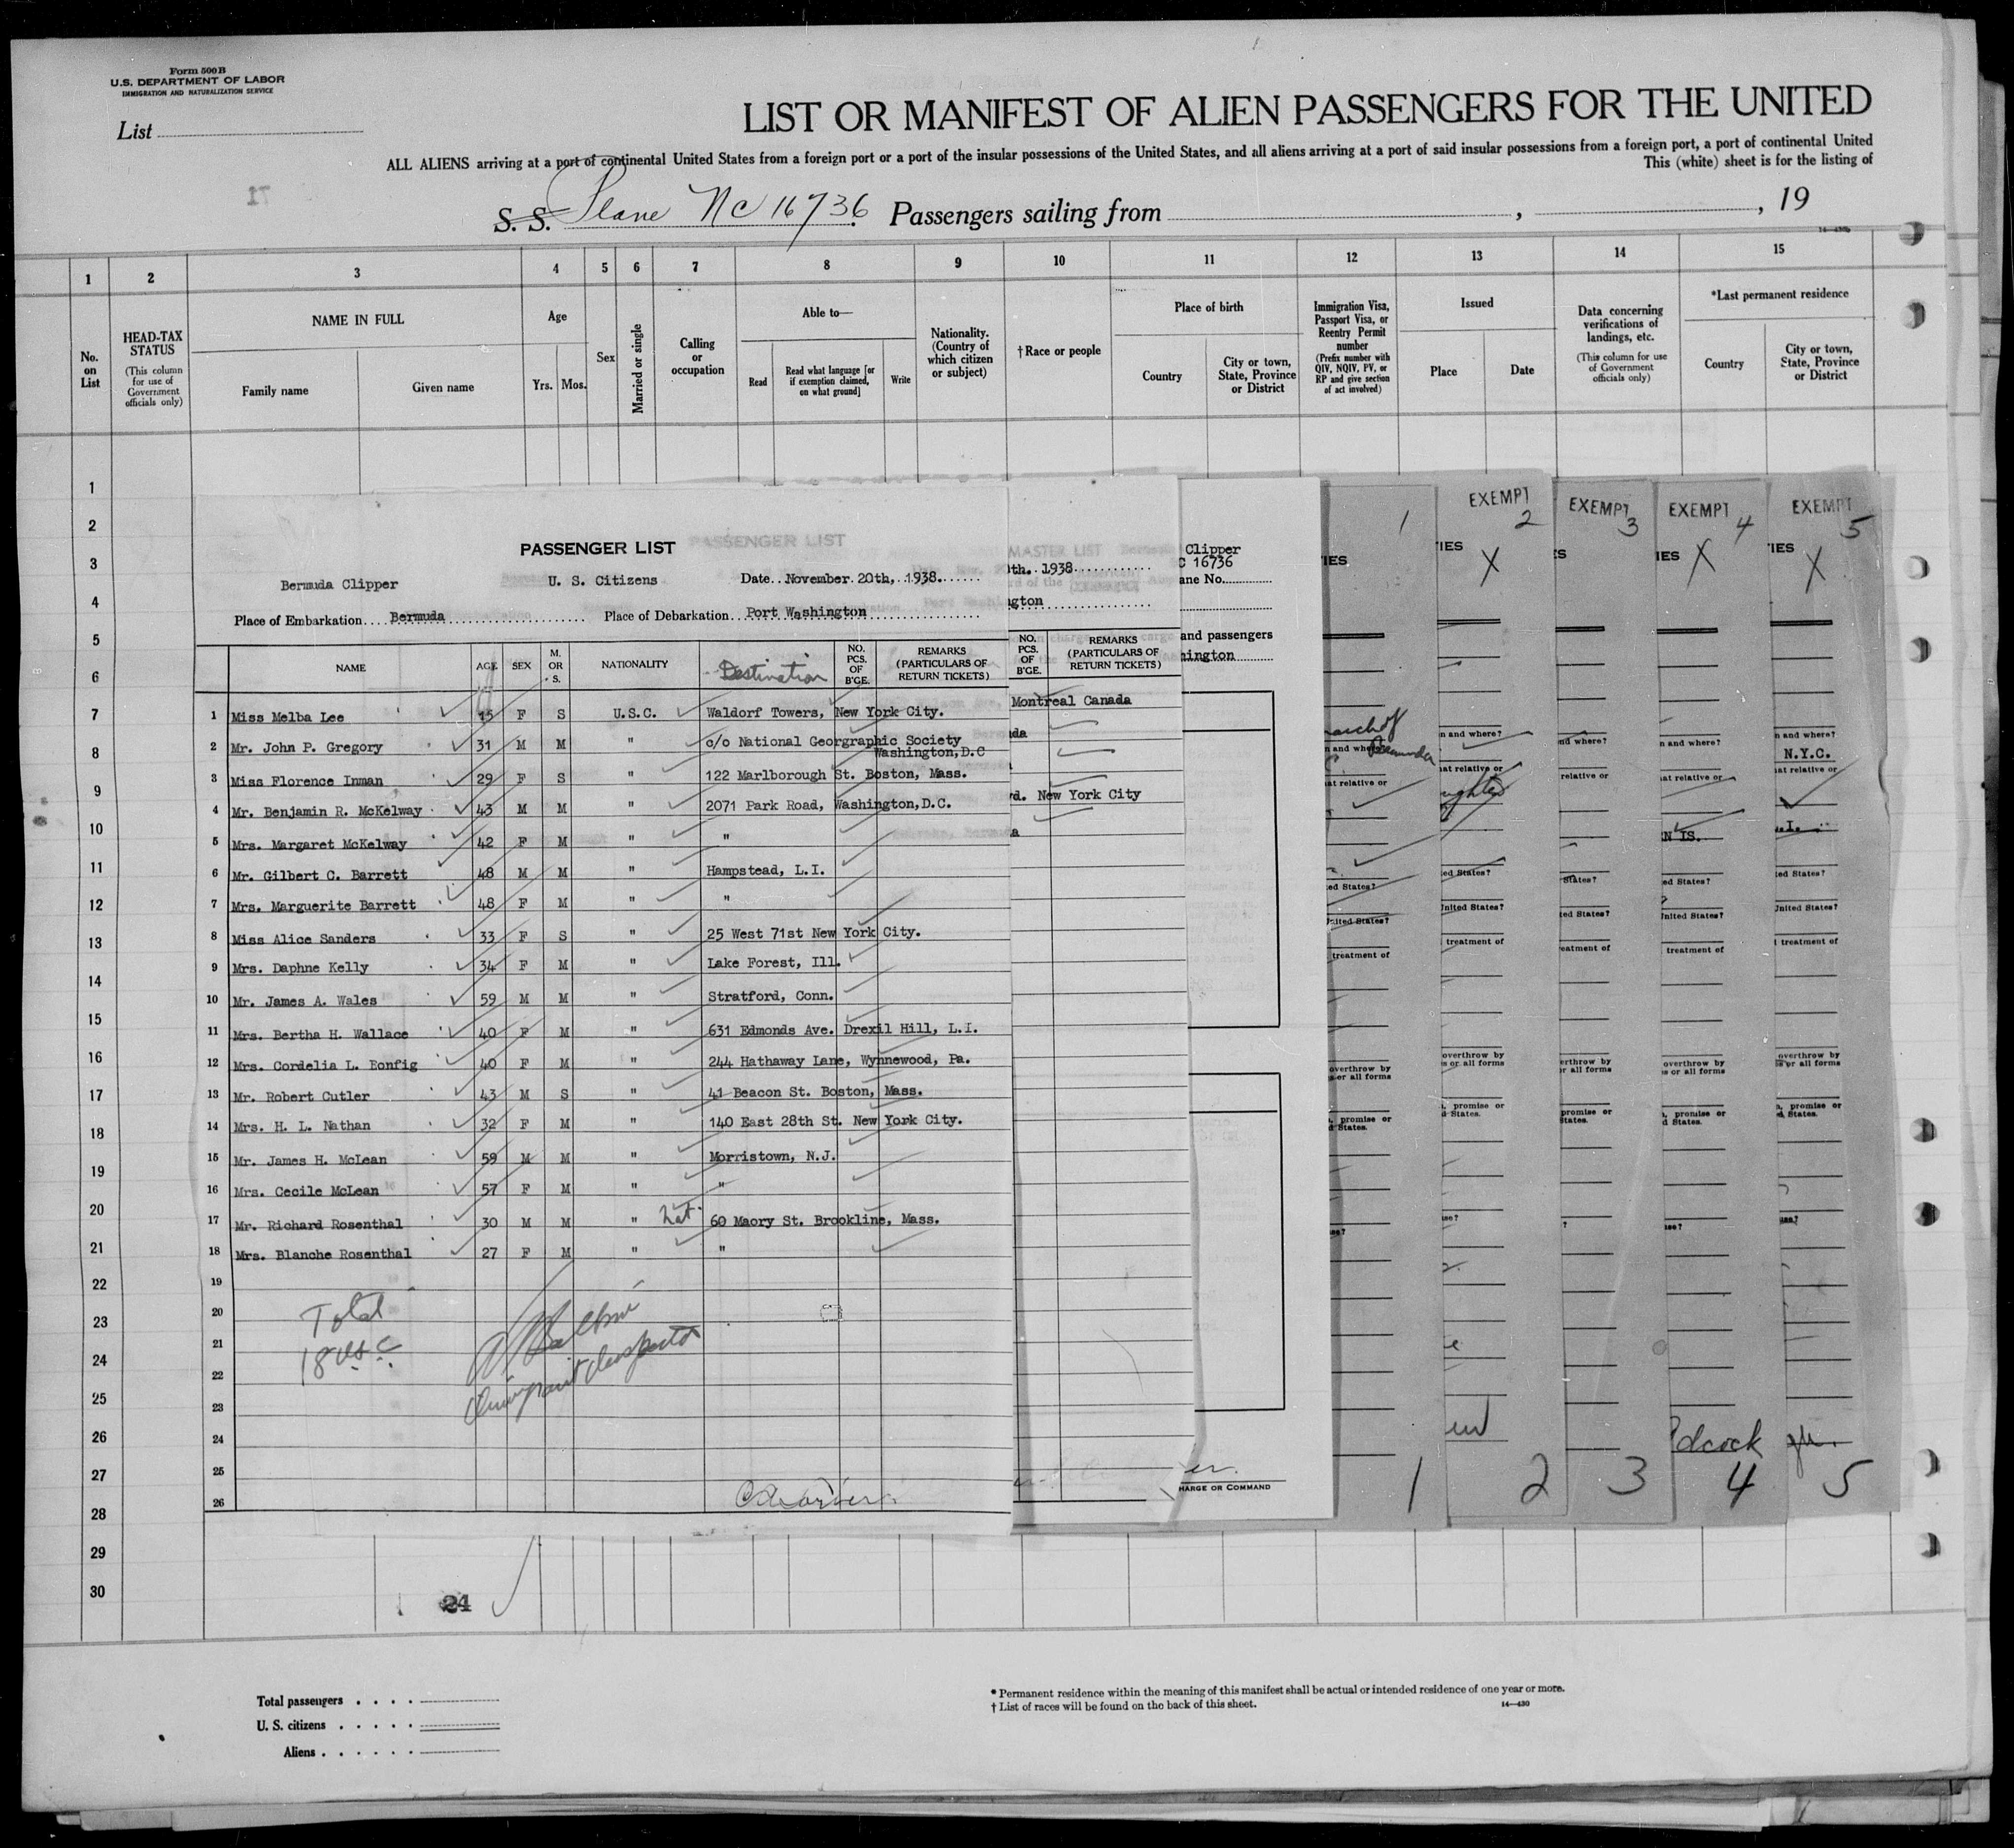 Form 500B
U.S. DEPARTMENT OF LABOR
IMMIGRATION AND NATURALIZATION SERVICE
List
LIST OR MANIFEST OF ALIEN PASSENGERS FOR THE UNITED
ALL ALIENS arriving at a port of continental United States from a foreign port or a port of the insular possessions of the United States, and all aliens arriving at a port of said insular possessions from a foreign port, a port of continental United
This (white) sheet is for the listing of
71
S. S. Plane NC 16736 Passengers sailing from , , 19
1 2 3 4 5 6 7 8 9 10 11 12 13 14 15
No. on List
HEAD-TAX STATUS
(This column for use of Government officials only)
NAME IN FULL
Family name Given name
Age
Yrs. Mos.
Sex
Married or single
Calling or occupation
Able to—
Read
Read what language [or if exemption claimed, on what ground]
Write
Nationality. (Country of which citizen or subject)
†Race or people
Place of birth
Country
City or town, State, Province or District
Immigration Visa, Passport Visa, or Reentry Permit number
(Prefix number with QIV, NQIV, PV, or RP and give section of act involved)
Issued
Place Date
Data concerning verifications of landings, etc.
(This column for use of Government officials only)
*Last permanent residence
Country
City or town, State, Province or District
1
2
3
4
5
6
7
8
9
10
11
12
13
14
15
16
17
18
19
20
21
22
23
24
25
26
27
28
29
30
PASSENGER LIST
Bermuda Clipper U. S. Citizens Date November 20th, 1938.
Place of Embarkation Bermuda Place of Debarkation Port Washington
NAME AGE SEX M. OR S. NATIONALITY Destination NO. PCS. OF B'GE. REMARKS (PARTICULARS OF RETURN TICKETS)
1 Miss Melba Lee 15 F S U.S.C. Waldorf Towers, New York City.
2 Mr. John P. Gregory 31 M M " c/o National Georgraphic Society
Washington,D.C
3 Miss Florence Inman 29 F S " 122 Marlborough St. Boston, Mass.
4 Mr. Benjamin R. McKelway 43 M M " 2071 Park Road, Washington,D.C.
5 Mrs. Margaret McKelway 42 F M " "
6 Mr. Gilbert C. Barrett 48 M M " Hampstead, L.I.
7 Mrs. Marguerite Barrett 48 F M " "
8 Miss Alice Sanders 33 F S " 25 West 71st New York City.
9 Mrs. Daphne Kelly 34 F M " Lake Forest, Ill.
10 Mr. James A. Wales 59 M M " Stratford, Conn.
11 Mrs. Bertha H. Wallace 40 F M " 631 Edmonds Ave. Drexil Hill, L.I.
12 Mrs. Cordelia L. Eonfig 40 F M " 244 Hathaway Lane, Wynnewood, Pa.
13 Mr. Robert Cutler 43 M S " 41 Beacon St. Boston, Mass.
14 Mrs. H. L. Nathan 32 F M " 140 East 28th St. New York City.
15 Mr. James H. McLean 59 M M " Morristown, N.J.
16 Mrs. Cecile McLean 57 F M " "
17 Mr. Richard Rosenthal 30 M M " Nat. 60 Maory St. Brookline, Mass.
18 Mrs. Blanche Rosenthal 27 F M " "
19
20
21
22
23
24
25
26
Total
18 USC
Immigrant Inspector
MASTER LIST
th. 1938
ngton
NO. PCS. OF B'GE. REMARKS (PARTICULARS OF RETURN TICKETS)
Montreal Canada
da
rd. New York City
a
Clipper
C 16736
ane No.
and passengers
hington
er.
HARGE OR COMMAND
1
IES
n and where? Bermuda
at relative or
ed States?
United States?
treatment of
overthrow by
s or all forms
, promise or
d States.
use?
1
EXEMPT
2
IES X
n and where?
at relative or
ughter
ed States?
United States?
treatment of
overthrow by
s or all forms
, promise or
d States.
use?
2
EXEMPT
3
S
nd where?
relative or
States?
ted States?
eatment of
erthrow by
r all forms
promise or
States.
?
3
EXEMPT
4
IES X
n and where?
at relative or
N IS.
ed States?
United States?
treatment of
overthrow by
s or all forms
, promise or
d States.
use?
dcock
4
EXEMPT
5
IES X
n and where?
N.Y.C.
at relative or
.I.
ed States?
United States?
treatment of
overthrow by
s or all forms
, promise or
d States.
use?
Jr.
5
24
Total passengers
U. S. citizens
Aliens
* Permanent residence within the meaning of this manifest shall be actual or intended residence of one year or more.
† List of races will be found on the back of this sheet.
14—430